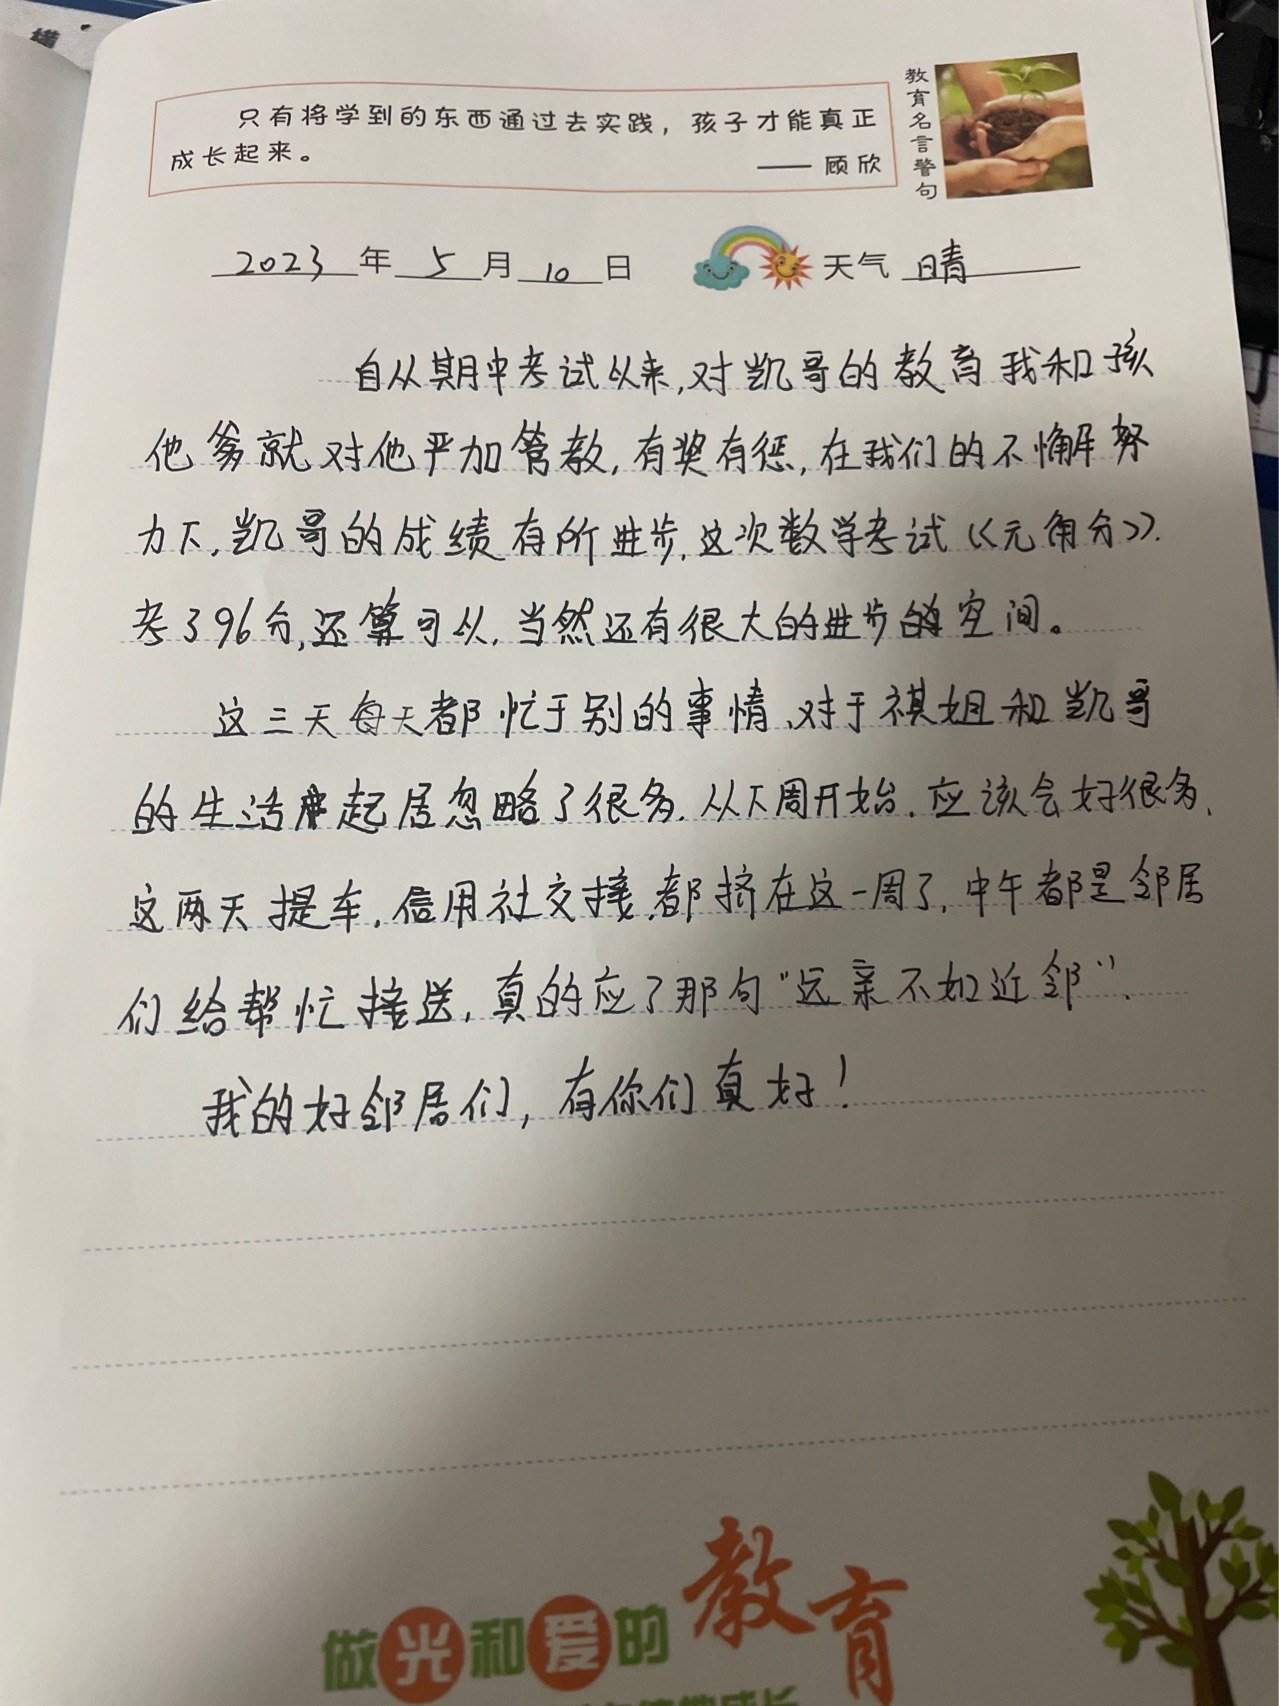 只有将学到的东西通过去实践，孩子才能真正
成长起来。
—— 顾欣
教育名言警句
2023年5月10日 天气 晴
自从期中考试以来,对凯哥的教育我和孩
他爹就对他严加管教,有奖有惩,在我们的不懈努
力下,凯哥的成绩有所进步,这次数学考试《元角分》.
考了96分,还算可以,当然还有很大的进步的空间。
这三天每天都忙于别的事情、对于祺姐和凯哥
的生活起居忽略了很多.从下周开始.应该会好很多、
这两天提车,信用社交接,都挤在这一周了,中午都是邻居
们给帮忙接送,真的应了那句"远亲不如近邻".
我的好邻居们,有你们真好!
做光和爱的教育